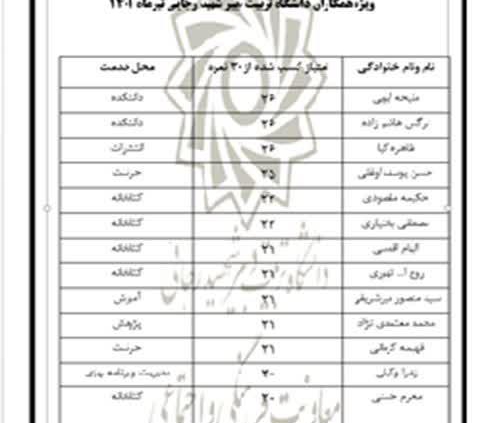 ویژه همکاران دانشگاه تربیت دبیر شهید رجایی تیرماه ۱۴۰۱
نام ونام خانوادگی امتیاز کسب شده از ۳۰ نمره محل خدمت
ملیحه ایچی ۲۶ دانشکده
نرگس هاشم زاده ۲۶ دانشکده
طاهره کیا ۲۶ انتشارات
حسن یوسف اوغلی ۲۵ حراست
حکیمه مقصودی ۲۲ کتابخانه
مصطفی بختیاری ۲۲ کتابخانه
الهام اقدسی ۲۱ کتابخانه
روح ا... تهوری ۲۱ کتابخانه
سید منصور میرشریفی ۲۱ آموزش
محمد معتمدی نژاد ۲۱ پژوهش
فهیمه کرمانی ۲۱ حراست
زهرا وکیلی ۲۰ مدیریت و برنامه ریزی
محرم حسنی ۲۰ کتابخانه
دانشگاه تربیت دبیر شهید رجایی
معاونت فرهنگی و اجتماعی